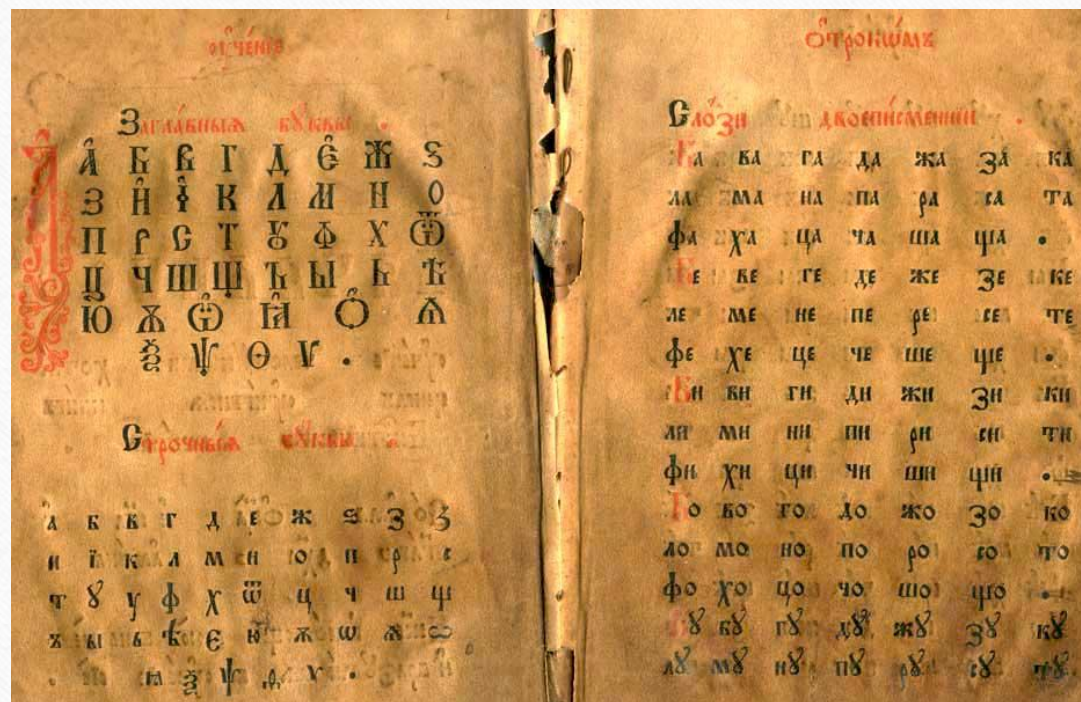 оучéнїе
Заглáвныя бꙋ́квы .
А Б В Г Д Е Ж Ѕ
З И І К Л М Н О
П Р С Т Ꙋ Ф Х Ѿ
Ц Ч Ш Щ Ъ Ы Ь Ѣ
Ю Ѫ Ѡ Ꙗ О Ѧ
Ѯ Ѱ Ѳ Ѵ .
Стрóчныя бꙋ́квы
а б в г д е ж ѕ з ꙁ
и ї к л м н о п р с
т ꙋ у ф х ѿ ц ч ш щ
ъ ы ь ѣ є ю ж ѡ ѫ
ꙗ ѯ ѱ ѵ .
О҆трокѡ́мъ
Слóзи двоеписменнїи .
Ба ва га да жа за ка
ла ма на па ра са та
фа ха ца ча ша ща .
Бе ве ге де же зе ке
ле ме не пе ре се те
фе хе це че ше ще .
Би ви ги ди жи зи ки
ли ми ни пи ри си ти
фи хи ци чи ши щи .
Бо во го до жо зо ко
ло мо но по ро со то
фо хо цо чо шо що .
Бꙋ вꙋ гꙋ дꙋ жꙋ зꙋ кꙋ
лꙋ мꙋ нꙋ пꙋ рꙋ сꙋ тꙋ